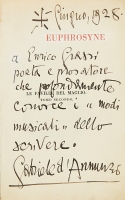 Giugno, 1928.
EUPHROSYNE
a Enrico Grassi
poeta e prosatore
che profondamente
LE FAVILLE DEL MAGLIO
TOMO SECONDO
conosce i "modi
musicali" dello
scrivere.
Gabriele d'Annunzio